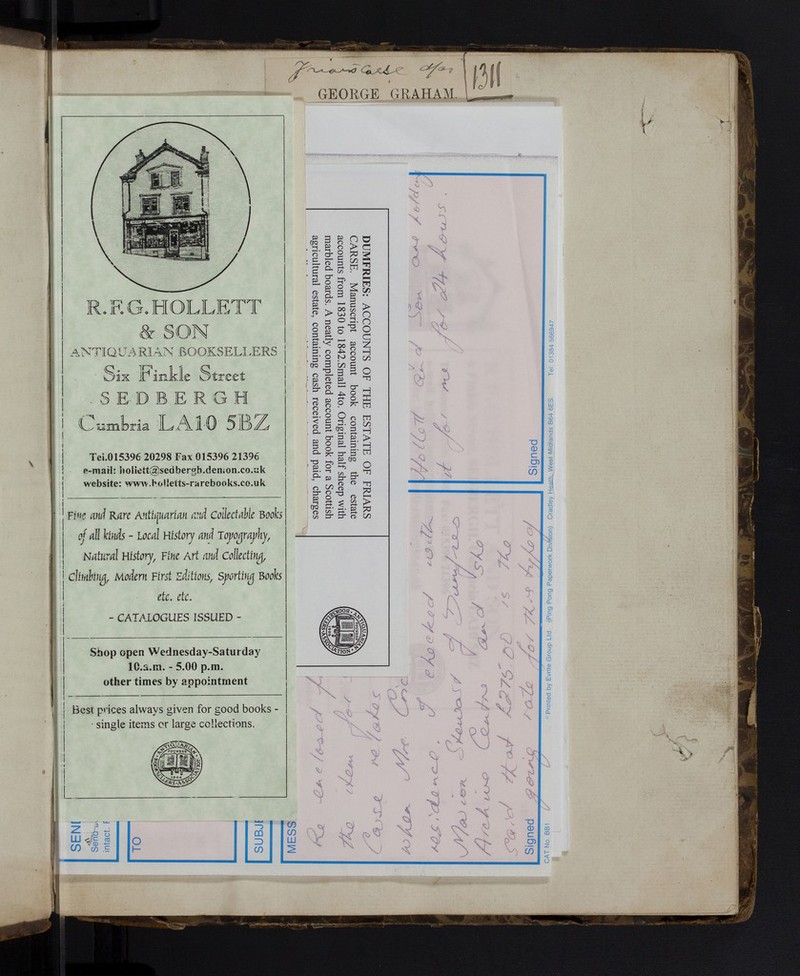 Friars Carse
1311
GEORGE GRAHAM.
R.F.G.HOLLETT
& SON
ANTIQUARIAN BOOKSELLERS
Six Finkle Street
SEDBERGH
Cumbria LA10 5BZ
Tel.015396 20298 Fax 015396 21396
e-mail: hollett@sedbergh.demon.co.uk
website: www.holletts-rarebooks.co.uk
Fine and Rare Antiquarian and Collectable Books
of all kinds - Local History and Topography,
Natural History, Fine Art and Collecting,
Climbing, Modern First Editions, Sporting Books
etc. etc.
- CATALOGUES ISSUED -
Shop open Wednesday-Saturday
10.a.m. - 5.00 p.m.
other times by appointment
Best prices always given for good books -
- single items or large collections.
DUMFRIES: ACCOUNTS OF THE ESTATE OF FRIARS
CARSE. Manuscript account book containing the estate
accounts from 1830 to 1842.Small 4to. Original half sheep with
marbled boards. A neatly completed account book for a Scottish
agricultural estate, containing cash received and paid, charges
SEND
intact.
TO
SUBJE
MESS
Re enclosed
the item for
Carse relates
when Mr
residence. I checked with
Marion Stewart of Dumfries
Archive Centre and she
said that £275-00 is the
going rate for this type of
Hollett and Son are holding
it for me for 24 hours.
Signed
Signed
CAT No. BB1
Printed by Everite Group Ltd (Ping Pong Paperwork Division) Cradley Heath, West Midlands B64 6ES. Tel: 01384 566947